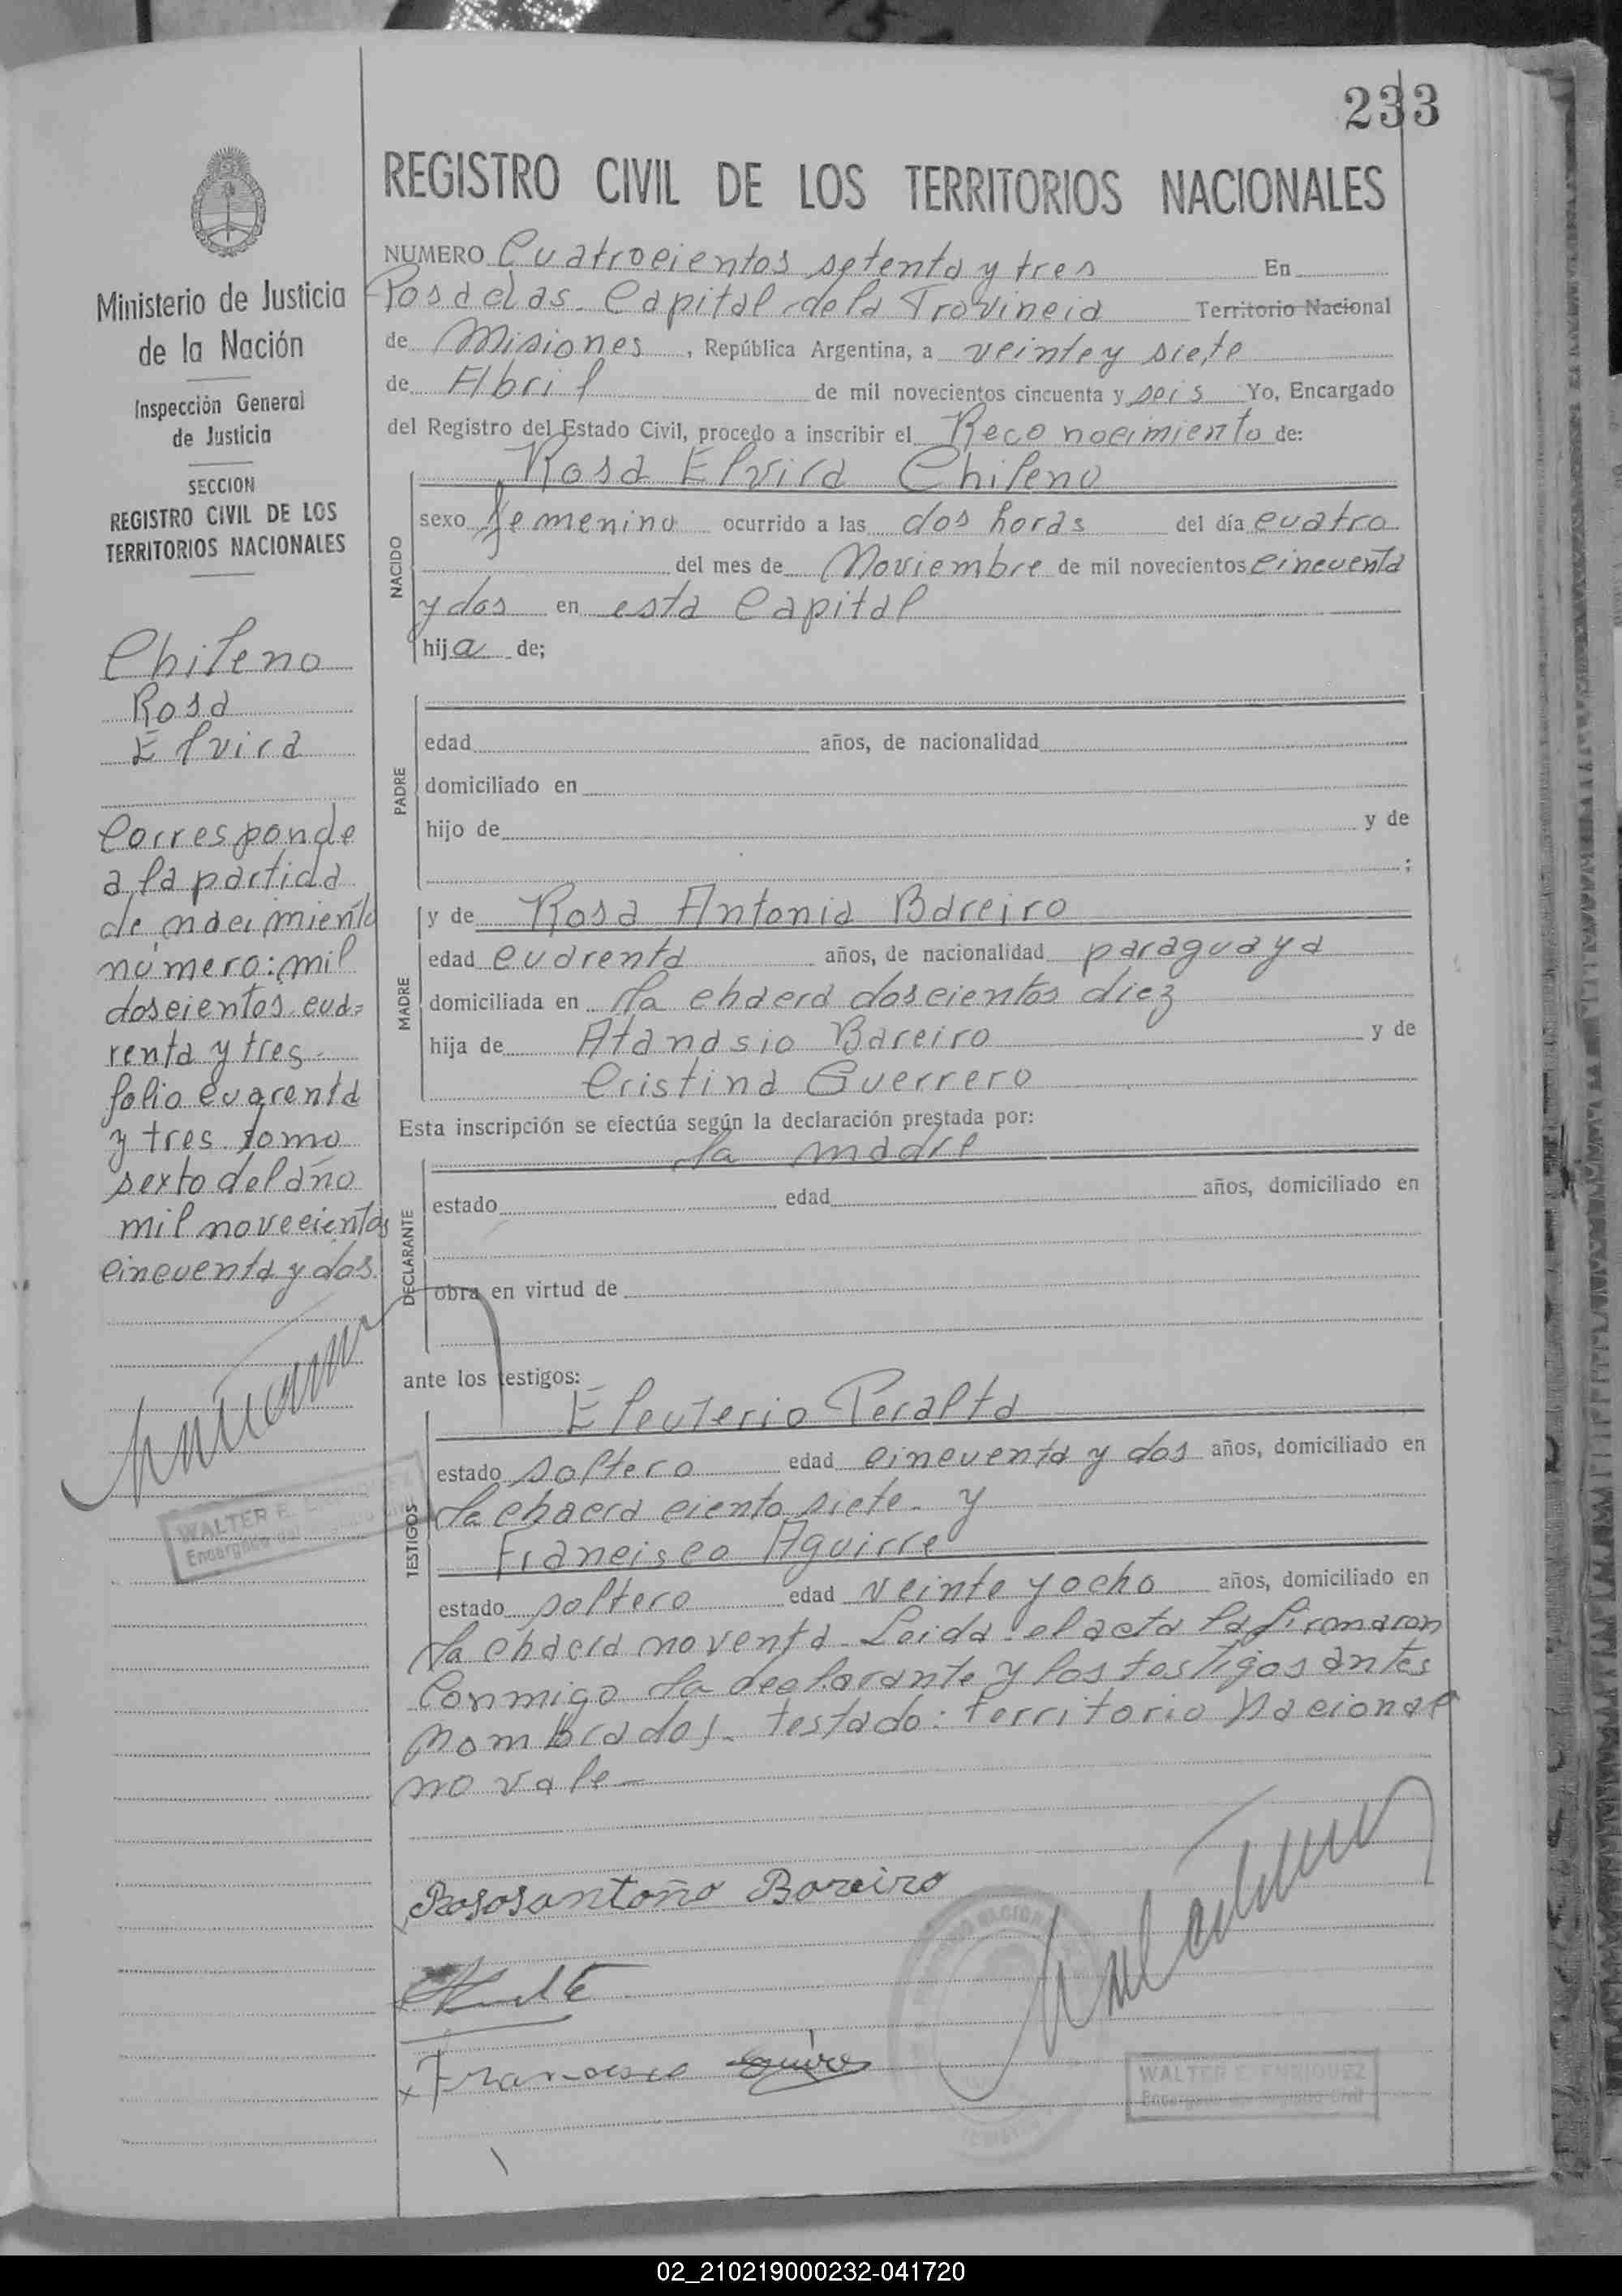 233
REGISTRO CIVIL DE LOS TERRITORIOS NACIONALES
Ministerio de Justicia
de la Nación
Inspección General
de Justicia
SECCION
REGISTRO CIVIL DE LOS
TERRITORIOS NACIONALES
Chileno
Rosa
Elvira
Corresponde
a la partida
de nacimiento
número: mil
doscientos cua=
renta y tres.
folio cuarenta
y tres tomo
sexto del año
mil novecientos
cincuenta y dos.
WALTER E.
Encargado del
NUMERO Cuatrocientos setenta y tres En
Posadas. Capital de la Provincia Territorio Nacional
de Misiones, República Argentina, a veinte y siete
de Abril de mil novecientos cincuenta y seis Yo, Encargado
del Registro del Estado Civil, procedo a inscribir el Reconocimiento de:
Rosa Elvira Chileno
NACIDO
sexo femenino ocurrido a las dos horas del día cuatro
del mes de Noviembre de mil novecientos cincuenta
y dos en esta Capital
hija de;
PADRE
edad años, de nacionalidad
domiciliado en
hijo de y de
;
MADRE
y de Rosa Antonia Bareiro
edad cuarenta años, de nacionalidad paraguaya
domiciliada en la chacra doscientos diez
hija de Atanasio Bareiro y de
Cristina Guerrero
Esta inscripción se efectúa según la declaración prestada por:
la madre
DECLARANTE
estado edad años, domiciliado en
obra en virtud de
ante los testigos:
Eleuterio Peralta
TESTIGOS
estado soltero edad cincuenta y dos años, domiciliado en
la chacra ciento siete. y
Francisco Aguirre
estado soltero edad veinte y ocho años, domiciliado en
la chacra noventa. Leida el acta la firmaron
Conmigo la declarante y los testigos antes
nombrados. testado: territorio Nacional
no vale—
Rososantoño Boreiro
Francisco
WALTER E. ENRIQUEZ
Encargado del Registro Civil
02_210219000232-041720